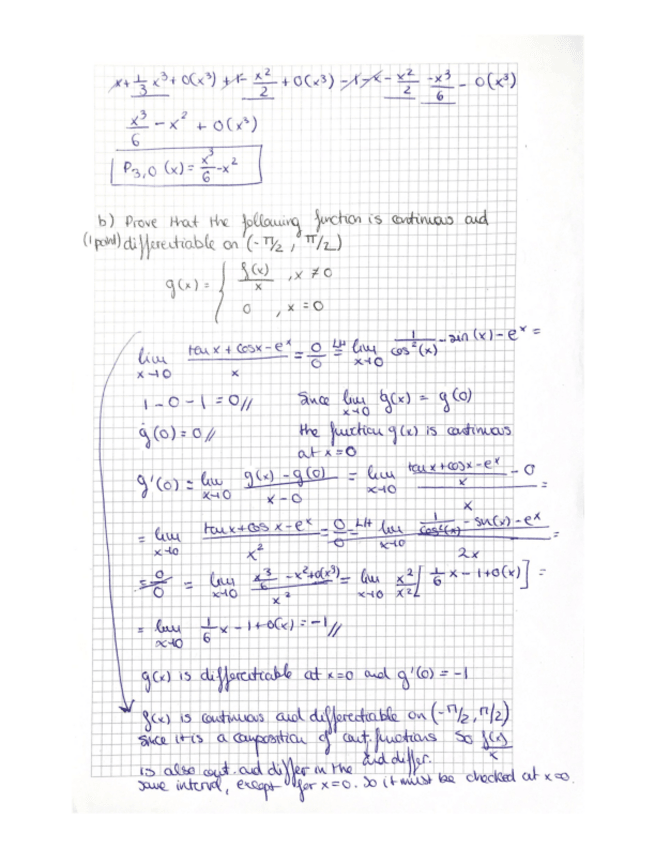 x + 1/3 x³ + O(x³) + 1 - x²/2 + O(x³) - 1 - x - x²/2 - x³/6 - O(x³)
x³/6 - x² + O(x³)
P3,0 (x) = x³/6 - x²
b) Prove that the following function is continuous and
(1 point) differentiable on (-π/2, π/2)
g(x) = { f(x)/x , x ≠ 0
0 , x = 0
lim x→0 (tan x + cos x - e^x)/x = 0/0 =LH lim x→0 1/cos²(x) - sin(x) - e^x =
1 - 0 - 1 = 0// Since lim x→0 g(x) = g(0)
g(0) = 0// the function g(x) is continuous
at x=0
g'(0) = lim x→0 (g(x) - g(0))/(x - 0) = lim x→0 ((tan x + cos x - e^x)/x - 0)/x =
= lim x→0 (tan x + cos x - e^x)/x² = 0/0 =LH lim x→0 (1/cos²(x) - sin(x) - e^x)/2x =
= 0/0 = lim x→0 (x³/6 - x² + O(x³))/x² = lim x→0 x²/x² [1/6 x - 1 + O(x)] =
= lim x→0 1/6 x - 1 + O(x) = -1//
g(x) is differentiable at x=0 and g'(0) = -1
f(x) is continuous and differentiable on (-π/2, π/2)
since it is a composition of cont. functions so f(x)/x
and differ.
is also cont. and differ in the
same interval, except for x=0. So it must be checked at x=0.